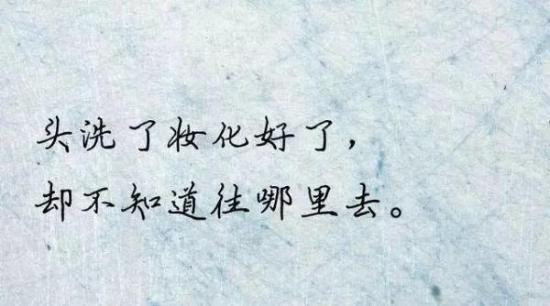 头洗了妆化好了，
却不知道往哪里去。